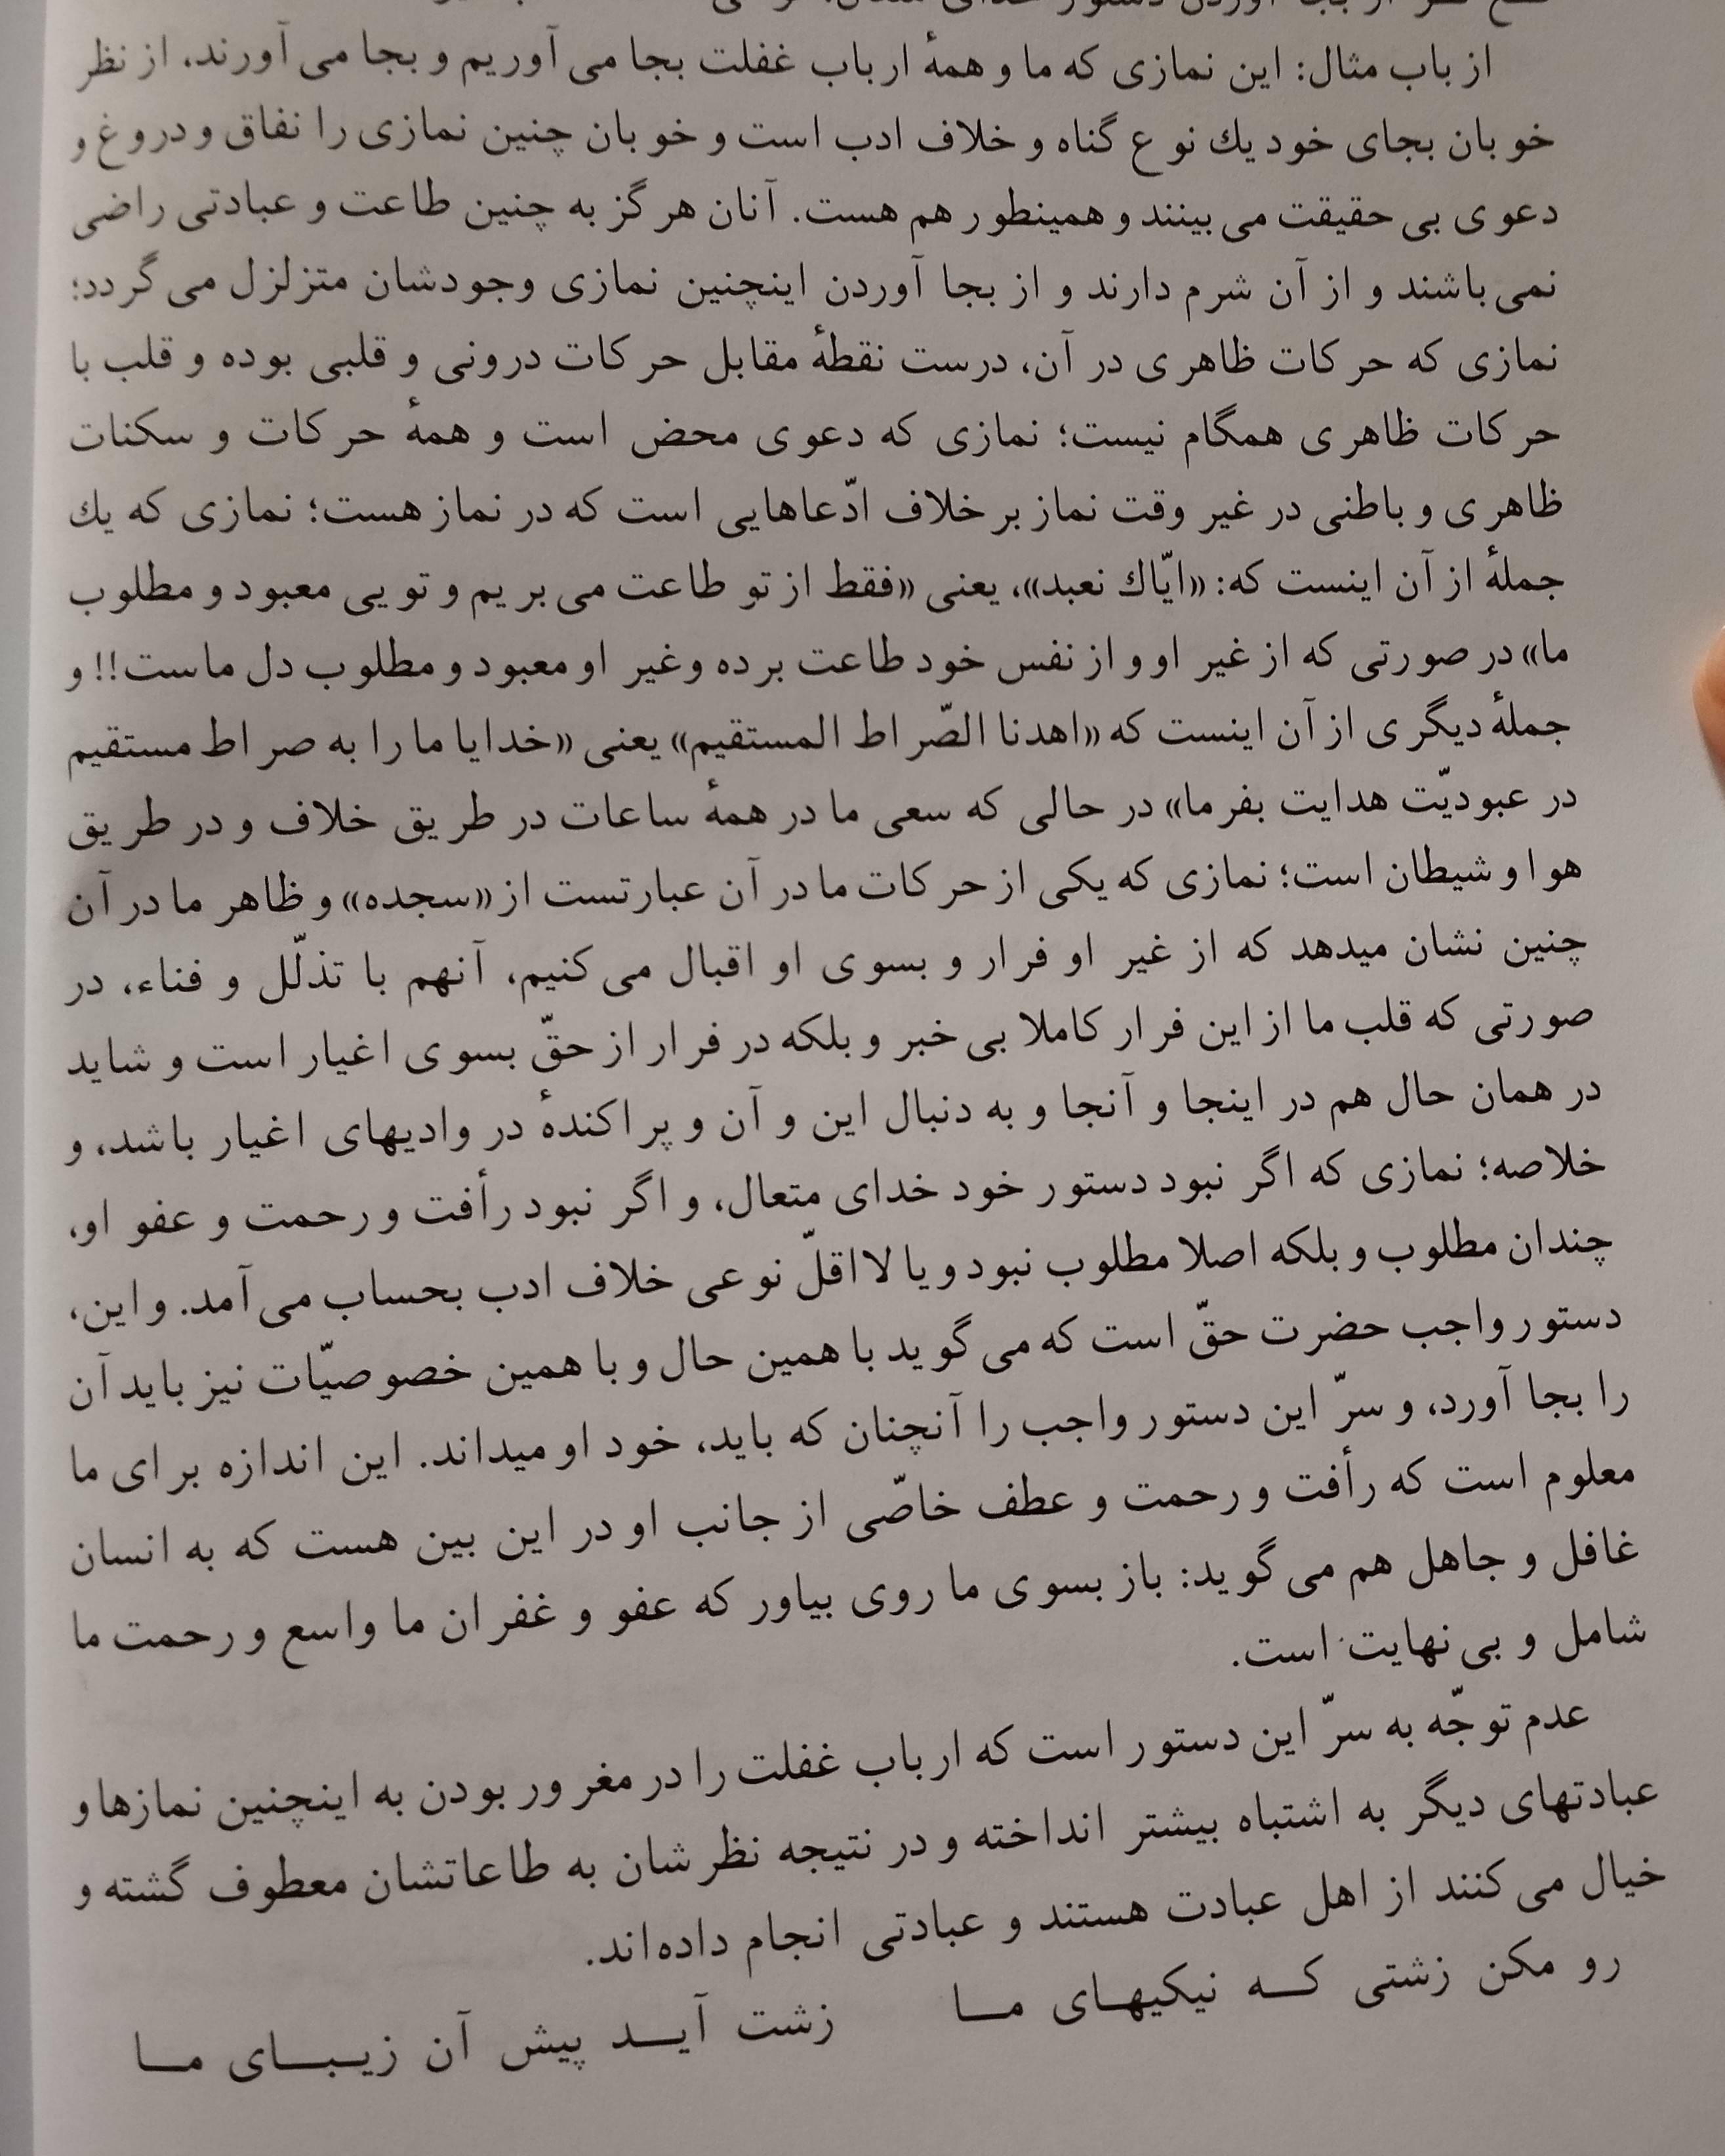 از باب مثال: این نمازی که ما و همهٔ ارباب غفلت بجا می‌آوریم و بجا می‌آورند، از نظر
خوبان بجای خود یك نوع گناه و خلاف ادب است و خوبان چنین نمازی را نفاق و دروغ و
دعوی بی حقیقت می‌بینند و همینطور هم هست. آنان هرگز به چنین طاعت و عبادتی راضی
نمی‌باشند و از آن شرم دارند و از بجا آوردن اینچنین نمازی وجودشان متزلزل می‌گردد؛
نمازی که حرکات ظاهری در آن، درست نقطهٔ مقابل حرکات درونی و قلبی بوده و قلب با
حرکات ظاهری همگام نیست؛ نمازی که دعوی محض است و همهٔ حرکات و سکنات
ظاهری و باطنی در غیر وقت نماز برخلاف ادّعاهایی است که در نماز هست؛ نمازی که یك
جملهٔ از آن اینست که: «ایّاك نعبد»، یعنی «فقط از تو طاعت می‌بریم و تویی معبود و مطلوب
ما» در صورتی که از غیر او و از نفس خود طاعت برده و غیر او معبود و مطلوب دل ماست!! و
جملهٔ دیگری از آن اینست که «اهدنا الصّراط المستقیم» یعنی «خدایا ما را به صراط مستقیم
در عبودیّت هدایت بفرما» در حالی که سعی ما در همهٔ ساعات در طریق خلاف و در طریق
هوا و شیطان است؛ نمازی که یکی از حرکات ما در آن عبارتست از «سجده» و ظاهر ما در آن
چنین نشان میدهد که از غیر او فرار و بسوی او اقبال می‌کنیم، آنهم با تذلّل و فناء، در
صورتی که قلب ما از این فرار کاملا بی خبر و بلکه در فرار از حقّ بسوی اغیار است و شاید
در همان حال هم در اینجا و آنجا و به دنبال این و آن و پراکندهٔ در وادیهای اغیار باشد، و
خلاصه؛ نمازی که اگر نبود دستور خود خدای متعال، و اگر نبود رأفت و رحمت و عفو او،
چندان مطلوب و بلکه اصلا مطلوب نبود و یا لااقلّ نوعی خلاف ادب بحساب می‌آمد. و این،
دستور واجب حضرت حقّ است که می‌گوید با همین حال و با همین خصوصیّات نیز باید آن
را بجا آورد، و سرّ این دستور واجب را آنچنان که باید، خود او میداند. این اندازه برای ما
معلوم است که رأفت و رحمت و عطف خاصّی از جانب او در این بین هست که به انسان
غافل و جاهل هم می‌گوید: باز بسوی ما روی بیاور که عفو و غفران ما واسع و رحمت ما
شامل و بی‌نهایت است.
عدم توجّه به سرّ این دستور است که ارباب غفلت را در مغرور بودن به اینچنین نمازها و
عبادتهای دیگر به اشتباه بیشتر انداخته و در نتیجه نظرشان به طاعاتشان معطوف گشته و
خیال می‌کنند از اهل عبادت هستند و عبادتی انجام داده‌اند.
رو مکن زشتی کــه نیکیهـای مــا زشت آیــد پیش آن زیــبــای مــا